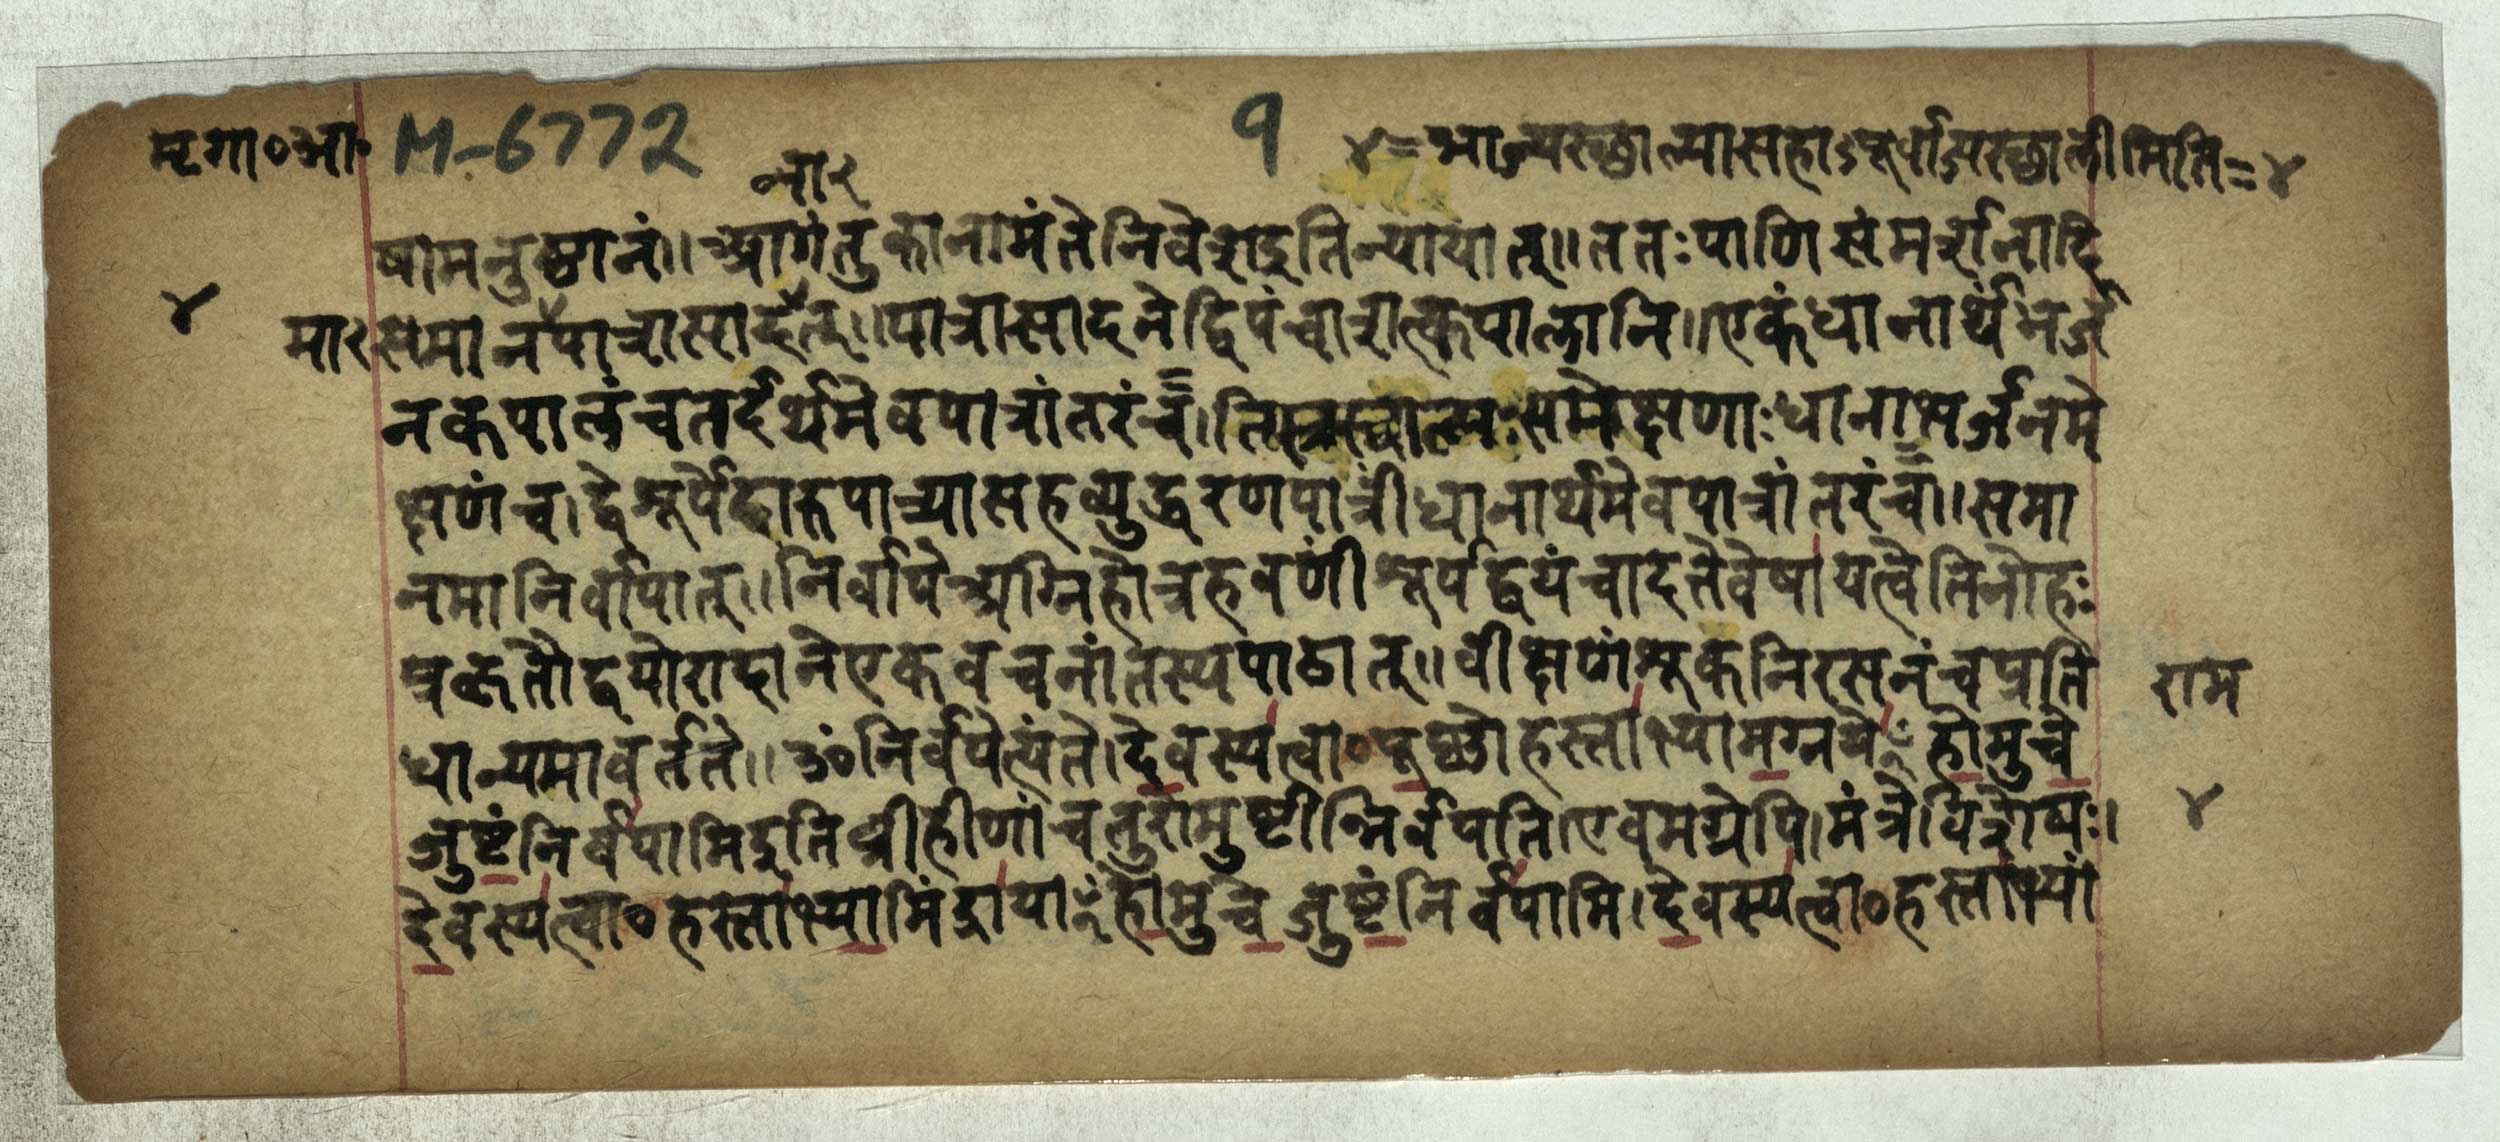 मृगा०आ० M-6772 १ ४=आज्यस्छाल्यासहाऽपूर्णाज्यस्छालीमिति=४
मा२
षामनुष्ठानं।।आगंतुकानामंतेनिवेशइतिन्यायात्।।ततःपाणिसंमर्शनादि
४ मा२ समानंपात्रासादनात्।।पात्रासादनेद्विपंचाशत्कपालानि।।एकंधानार्थंभर्ज
नकपालंचतदर्थमेवपात्रांतरंच।तिस्रस्छाल्यःसमेक्षणाःधानाभर्जनमे
क्षणंच।द्वेशूर्पेदारुपात्र्यासहव्युद्धरणपात्रींधानार्थमेवपात्रांतरंच।।समा
नमानिर्वापात्।।निर्वापेअग्निहोत्रहवणींशूर्पद्वयंचादत्तेवेषाययत्वेतिनोहः
प्रकृतौद्वयोरादानेएकवचनांतस्यपाठात्।।वीक्षणंशूकनिरसनंचप्रति राम
धान्यमावर्तते।।ॐनिर्वपेत्यंते।देवस्यत्वा०पूष्णोहस्ताभ्यामग्नयेꣳहोमुचे
जुष्टंनिर्वपामिइतिव्रीहीणांचतुरोमुष्टीन्निर्वपति।एवमग्रेपि।मंत्रेविशेषः। ४
देवस्यत्वा०हस्ताभ्यामिंद्रायाꣳहोमुचेजुष्टंनिर्वपामि।देवस्यत्वा०हस्ताभ्यां